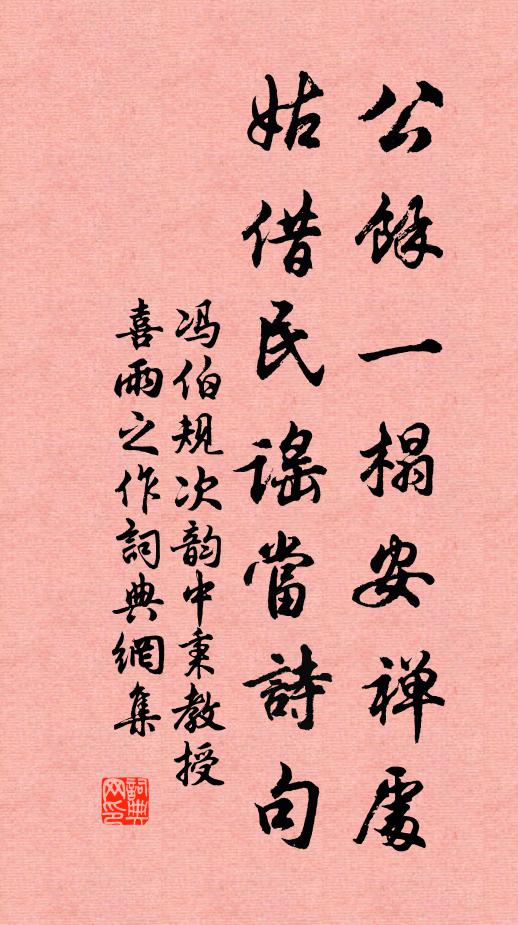 公餘一榻安禅處
姑借民謡當詩句
冯伯規次韵中秉教授
喜雨之作詞典網集
詞典网印